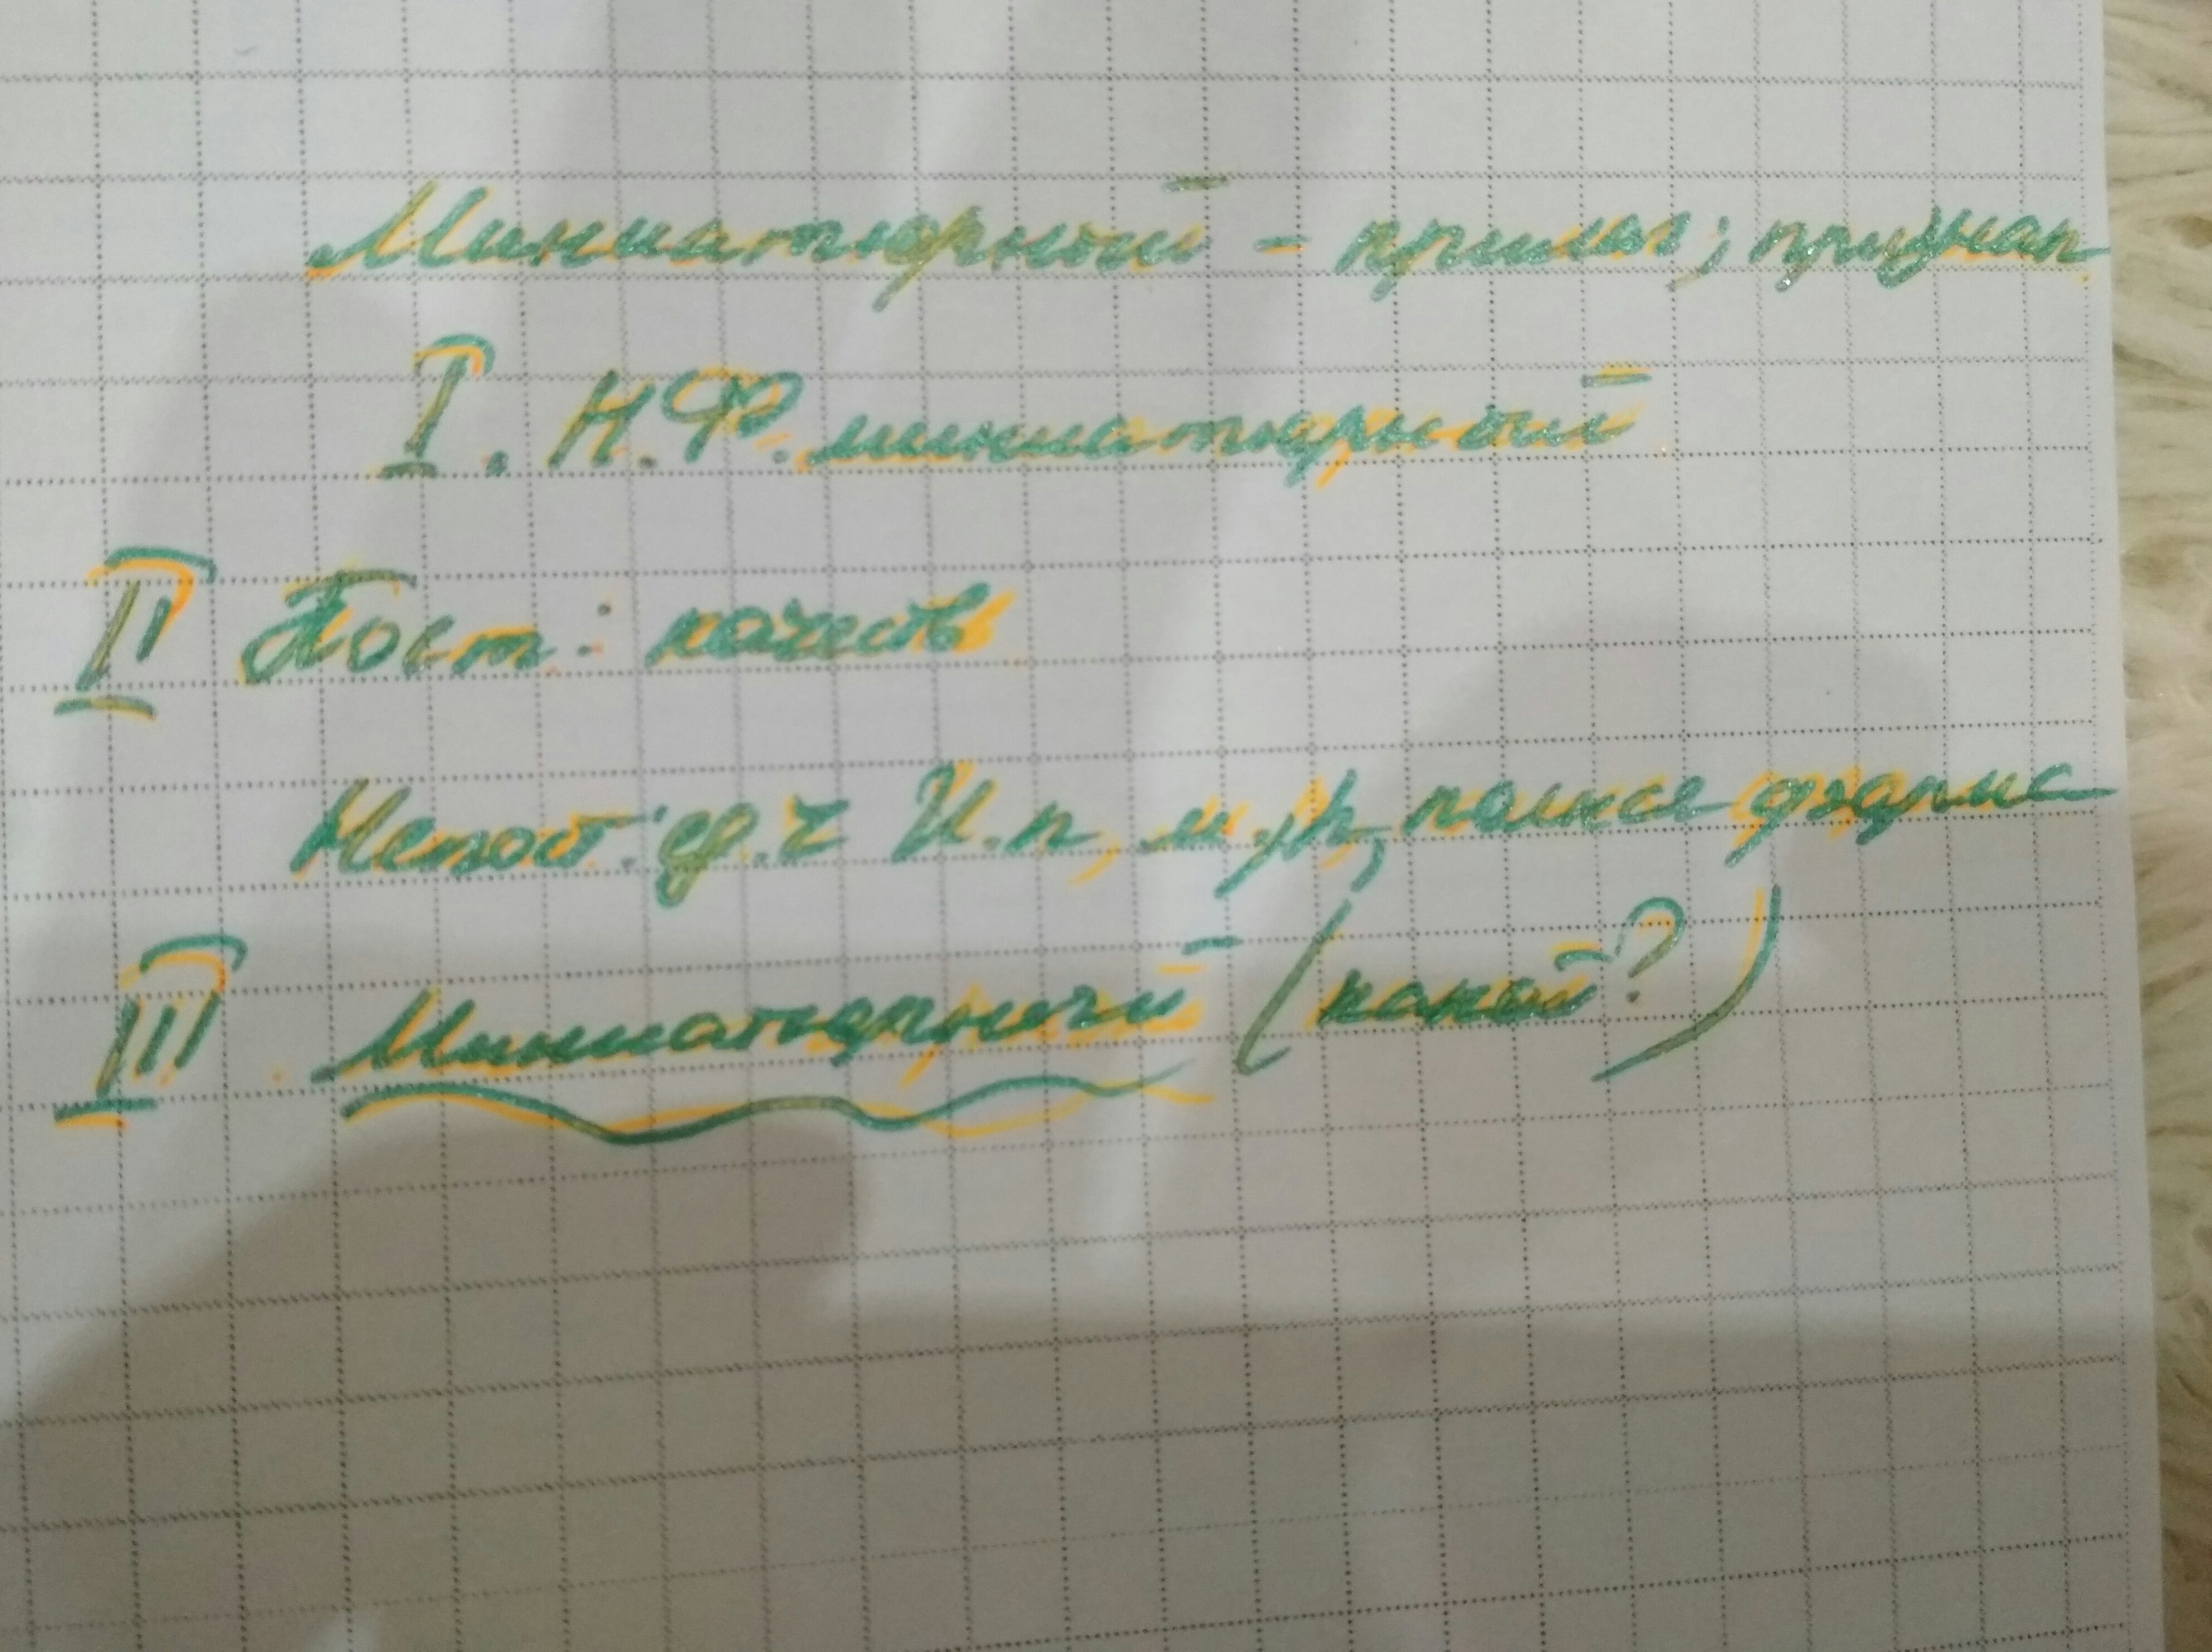 Миниатюрный - прилаг; признак
I. Н.Ф. миниатюрный
II Пост: качеств
Непост: ед.ч И.п, м.р, полная форма
III. Миниатюрный (какой?)